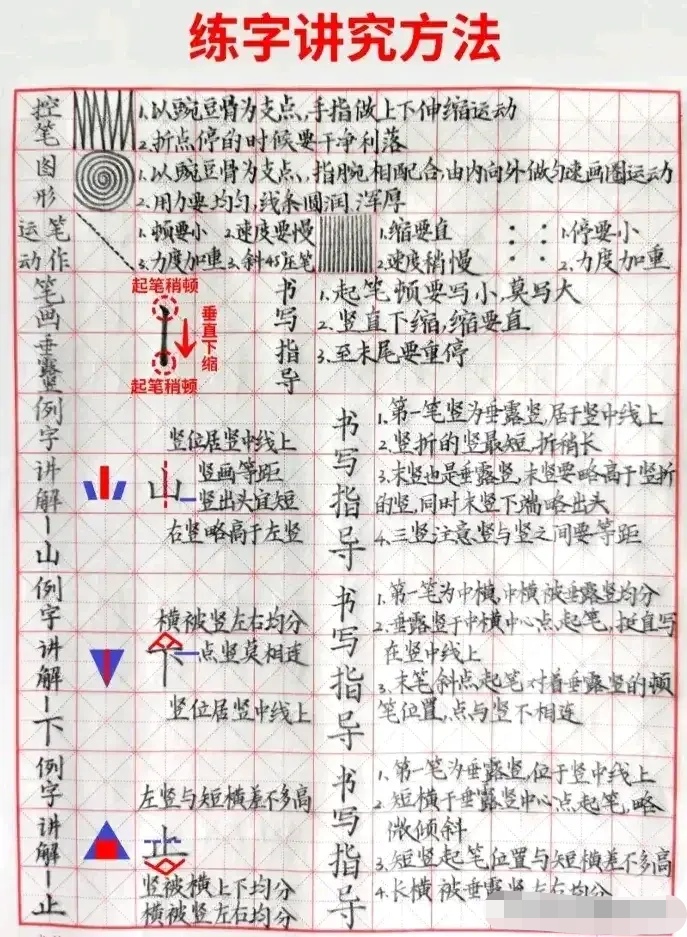 练字讲究方法
控笔
1.以豌豆骨为支点,手指做上下伸缩运动
2.折点停的时候要干净利落
图形
1.以豌豆骨为支点、指腕相配合,由内向外做匀速画圈运动
2.用力要均匀,线条圆润、浑厚
运笔
动作
1.顿要小 2.速度要慢
3.力度加重 2.斜45压笔
1.缩要直
2.速度稍慢
1.停要小
2.力度加重
笔画垂露竖
起笔稍顿
垂直下缩
起笔稍顿
书写指导
1.起笔顿要写小,莫写大
2.竖直下缩,缩要直
3.至末尾要重停
例字讲解-山
竖位居竖中线上
竖画等距
山
竖出头宜短
右竖略高于左竖
书写指导
1.第一笔竖为垂露竖,居于竖中线上
2.竖折的竖最短,折稍长
3.末竖也是垂露竖,末竖要略高于竖折
的竖,同时末竖下端略出头
4.三竖注意竖与竖之间要等距
例字讲解-下
横被竖左右均分
下
点竖莫相连
竖位居竖中线上
书写指导
1.第一笔为中横,中横被垂露竖均分
2.垂露竖于中横中心点起笔,挺直写
在竖中线上
3.末笔斜点起笔对着垂露竖的顿
笔位置,点与竖不相连
例字讲解-止
左竖与短横差不多高
止
竖被横上下均分
横被竖左右均分
书写指导
1.第一笔为垂露竖,位于竖中线上
2.短横于垂露竖中心点起笔,略
微倾斜
3.短竖起笔位置与短横差不多高
4.长横被垂露竖左右均分